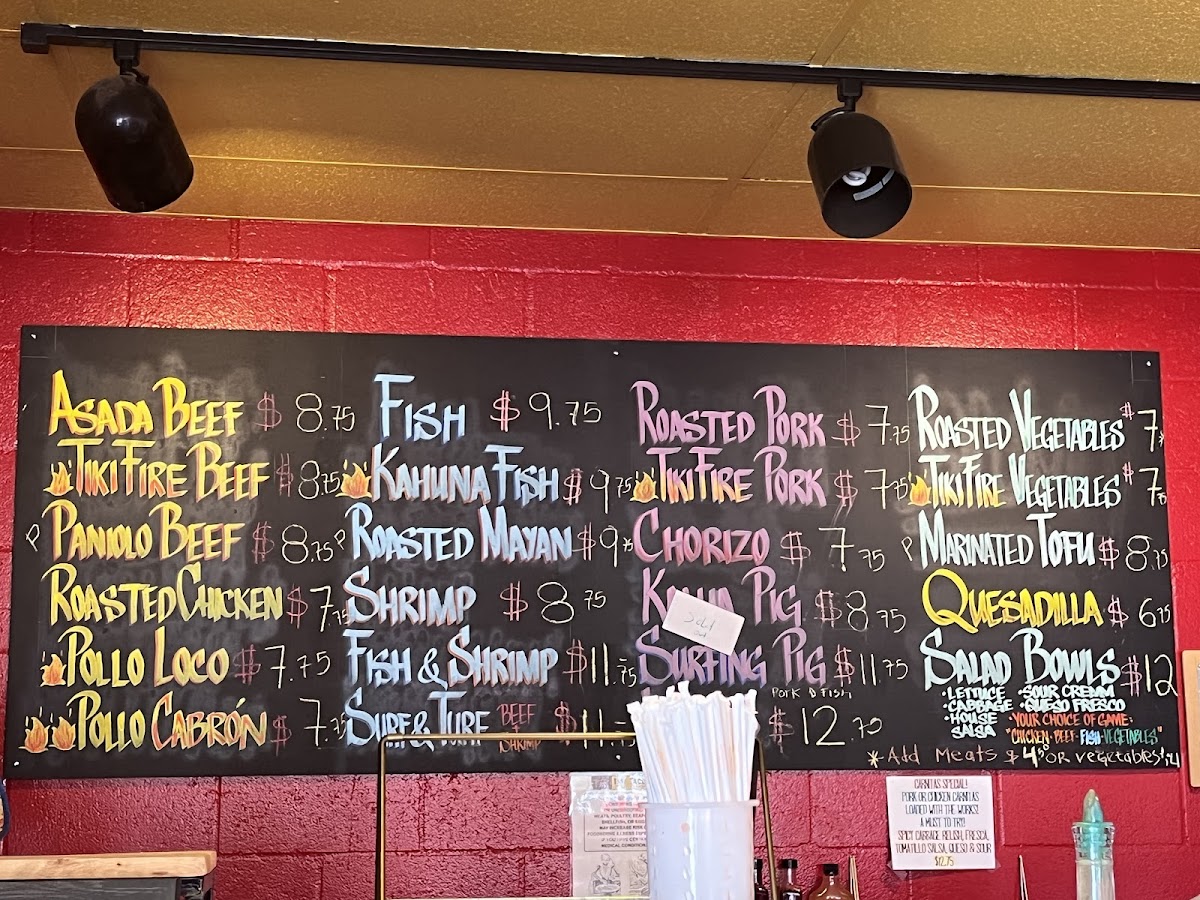 ASADA BEEF $ 8.75
TIKI FIRE BEEF $ 8.75
PANIOLO BEEF $ 8.75
ROASTED CHICKEN $ 7.75
POLLO LOCO $ 7.75
POLLO CABRÓN $ 7.75
FISH $ 9.75
KAHUNA FISH $ 9.75
ROASTED MAYAN $ 9
SHRIMP $ 8.75
FISH & SHRIMP $ 11.75
SURF & TURF BEEF SHRIMP $ 11.
ROASTED PORK $ 7.75
TIKI FIRE PORK $ 7.75
CHORIZO $ 7.75
PIG $ 8.75
Sold
out
SURFING PIG $ 11.75
PORK & FISH
$ 12.75
ROASTED VEGETABLES $ 7
TIKI FIRE VEGETABLES $ 7.75
MARINATED TOFU $ 8.75
QUESADILLA $ 6.75
SALAD BOWLS $ 12
• LETTUCE • SOUR CREMM
• CABBAGE • QUESO FRESCO
• HOUSE SALSA
• YOUR CHOICE OF GAME:
"CHICKEN • BEEF • FISH • VEGETABLES"
* Add Meats $ 4.50 or vegetables $
CARNITAS SPECIAL!
PORK OR CHICKEN CARNITAS
LOADED WITH THE WORKS!
A MUST TO TRY!
SPICY CABBAGE RELISH, FRESCA,
TOMATILLO SALSA, QUESO & SOUR
$12.75
MEDICAL CONDITION